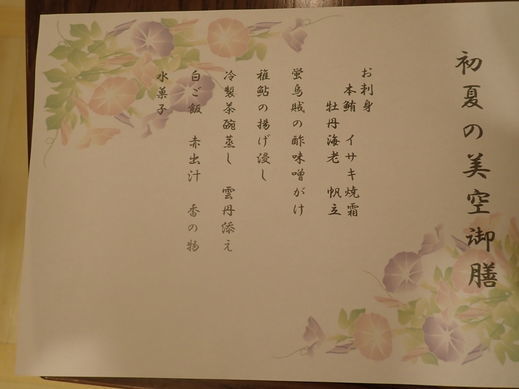 初夏の美空御膳
お刺身
本鮪 イサキ焼霜
牡丹海老 帆立
蛍烏賊の酢味噌がけ
稚鮎の揚げ浸し
冷製茶碗蒸し 雲丹添え
白ご飯 赤出汁 香の物
水菓子